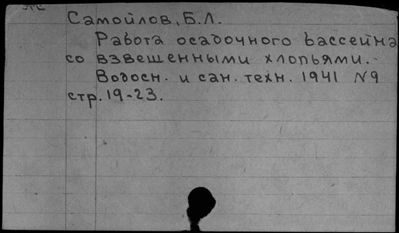 Самойлов, Б.Л.
Работа осадочного бассейна
со взвешенными хлопьями.
Водосн. и сан. техн. 1941 №9
стр. 19-23.